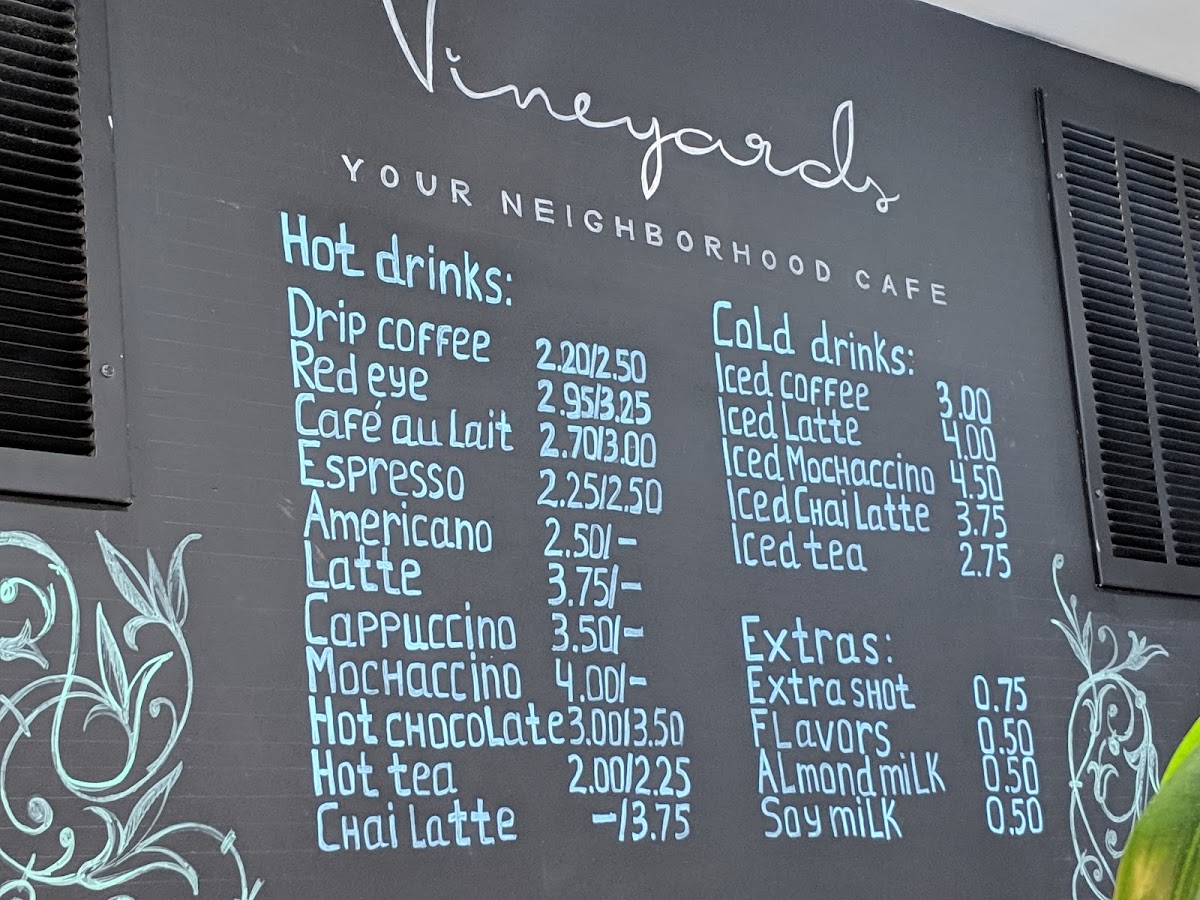 Vineyards
YOUR NEIGHBORHOOD CAFE
Hot drinks:
Drip coffee 2.20/2.50
Red eye 2.95/3.25
Café au lait 2.70/3.00
Espresso 2.25/2.50
Americano 2.50/-
Latte 3.75/-
Cappuccino 3.50/-
Mochaccino 4.00/-
Hot chocolate 3.00/3.50
Hot tea 2.00/2.25
Chai Latte -/3.75
Cold drinks:
Iced coffee 3.00
Iced Latte 4.00
Iced Mochaccino 4.50
Iced Chai Latte 3.75
Iced tea 2.75
Extras:
Extra shot 0.75
Flavors 0.50
Almond milk 0.50
Soy milk 0.50